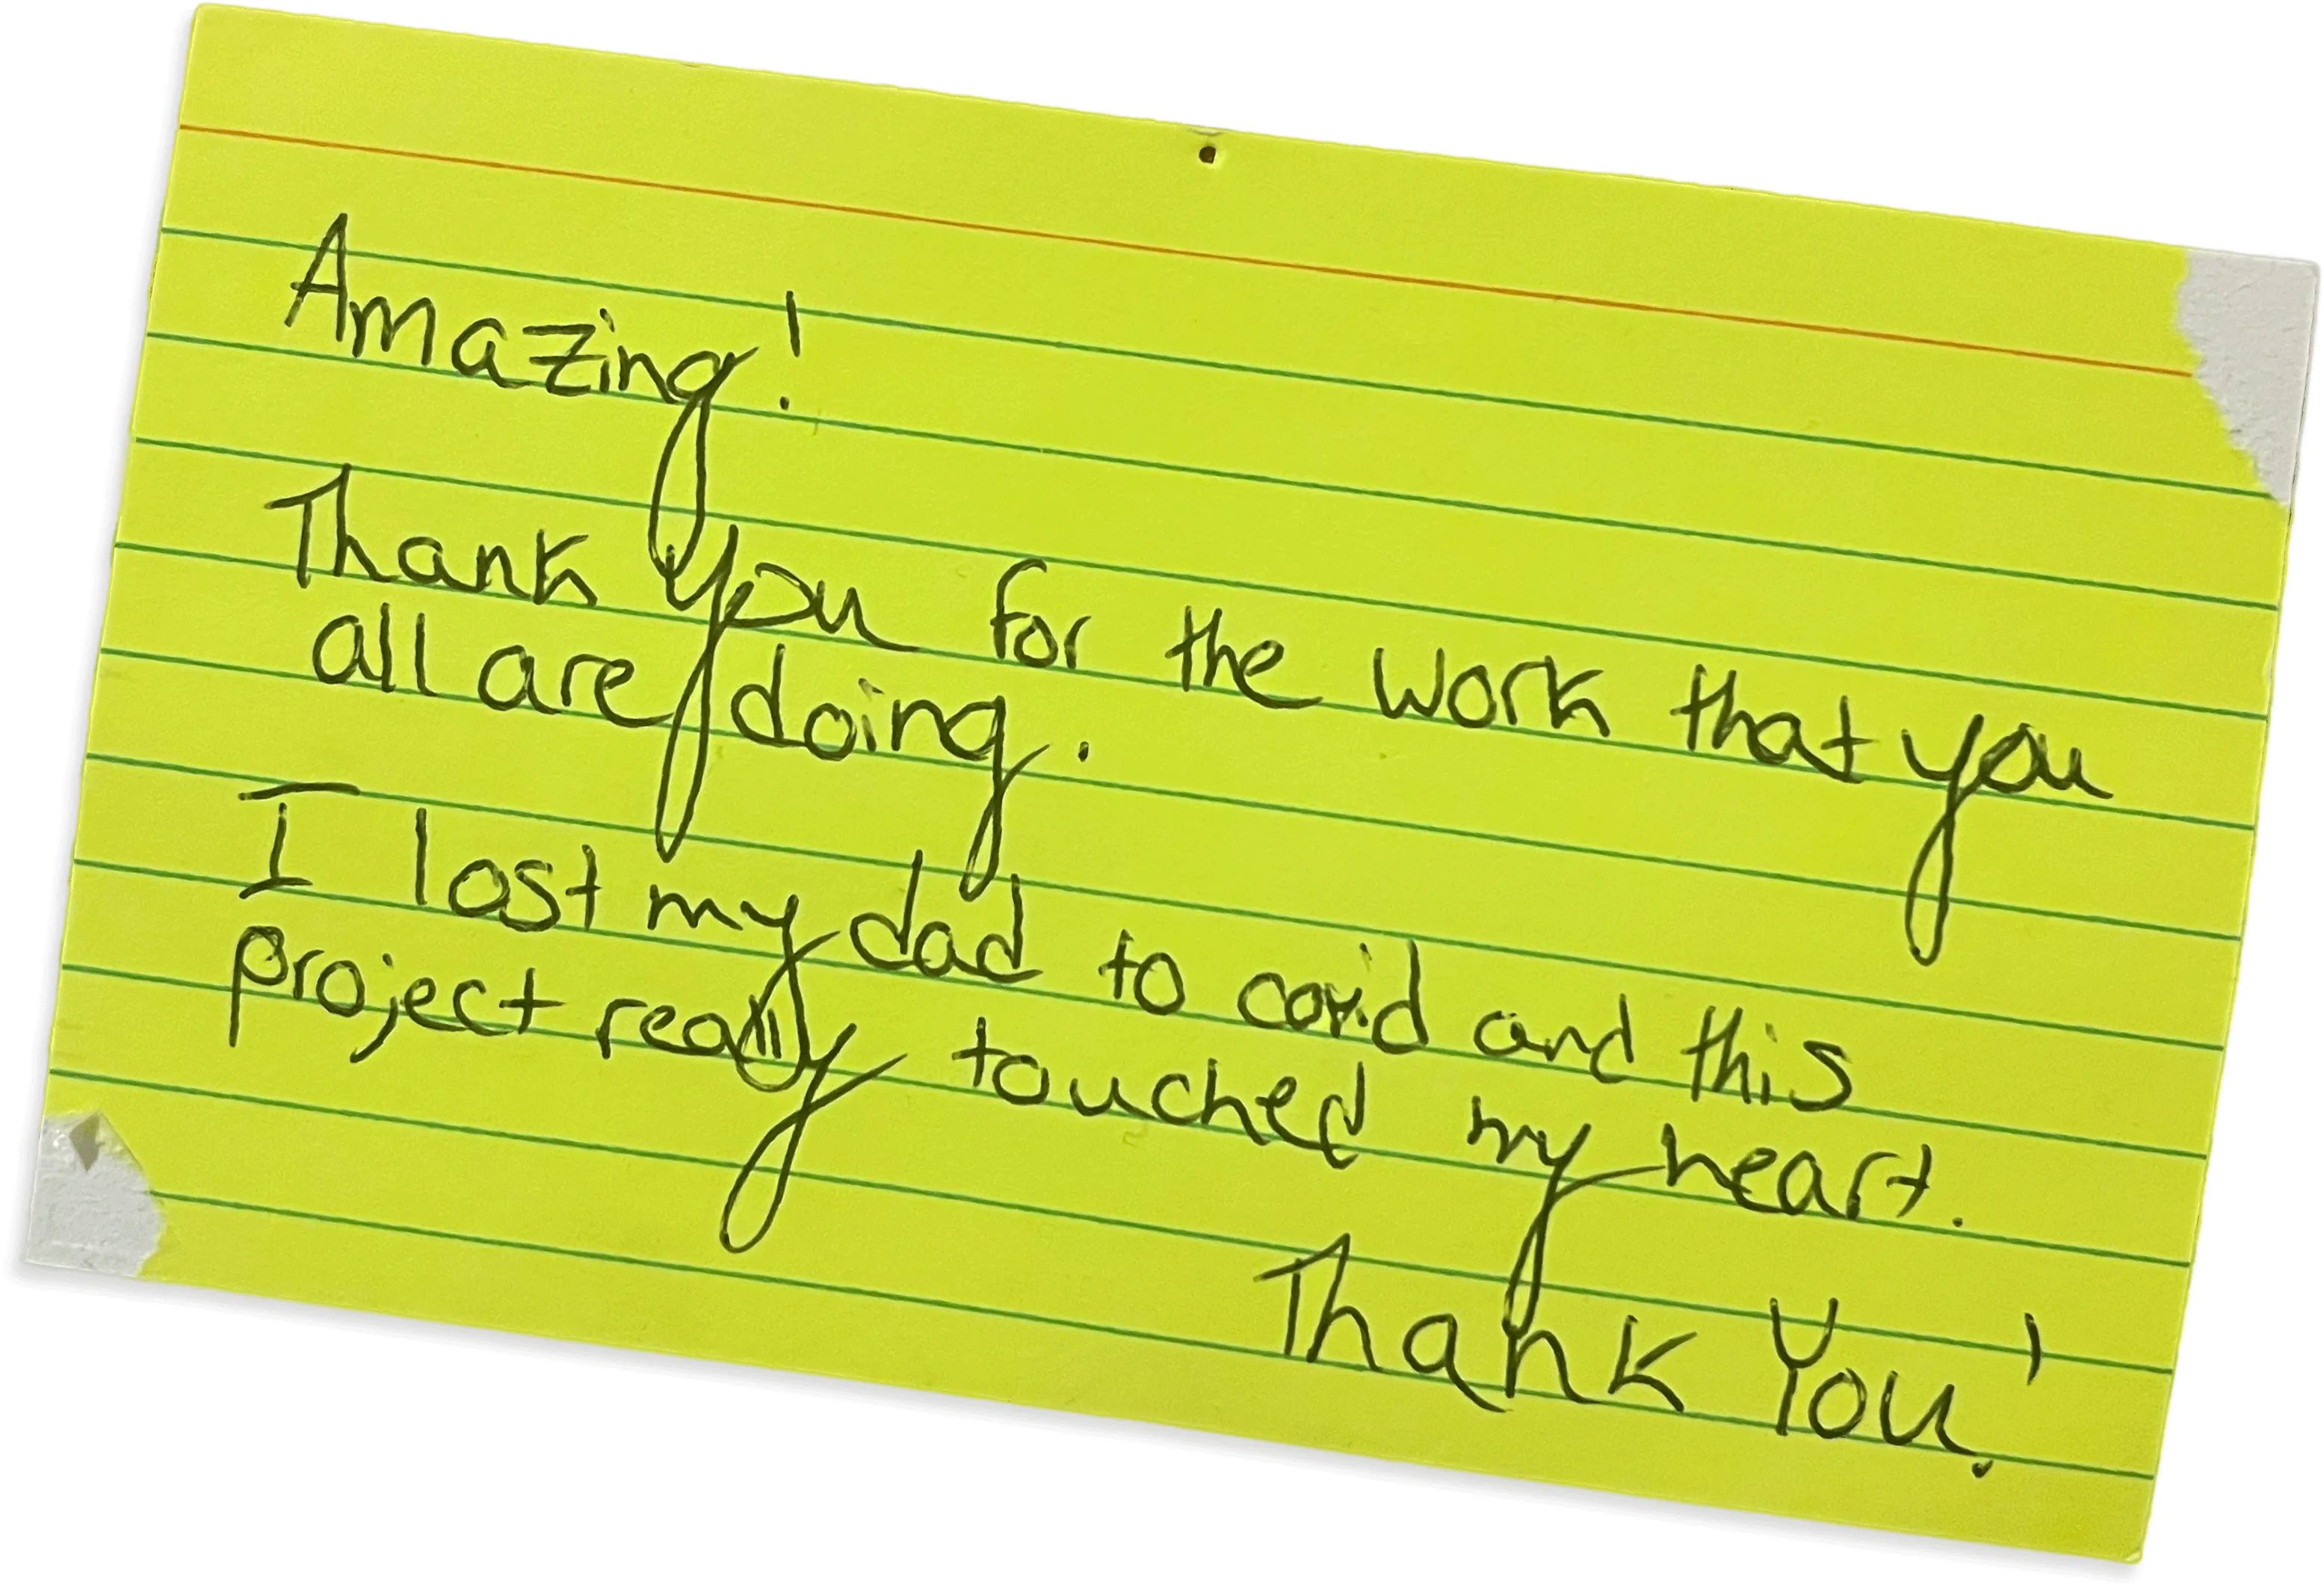 Amazing!
Thank you for the work that you
all are doing.
I lost my dad to covid and this
project really touched my heart.
Thank You!